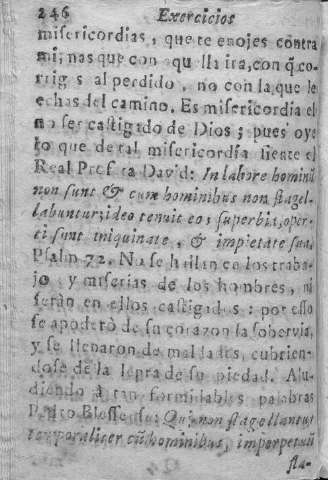 246 Exercicios
misericordias, que te enojes contra
mi; mas que con aquella ira, con q̃ co-
rriges al perdido, no con la que le
echas del camino. Es misericordia el
no ser castigado de Dios; pues oye
lo que de tal misericordia siente el
Real Profeta David: In labore hominũ
non sunt & cum hominibus non flagel-
labuntur; ideo tenuit eos superbia, oper-
ti sunt iniquitate, & impietate sua.
Psalm 72. No se hallan en los traba-
jos y miserias de los hombres, ni
seràn en ellos castigados: por esso
se apoderò de su corazon la sobervia,
y se llenaron de maldades, cubrien-
dose de la lepra de su piedad. Alu-
diendo à tan formidables palabras
Pedro Blesense: Qui non flagellantur
temporaliter cũ hominibus, in perpetuũ
fla-